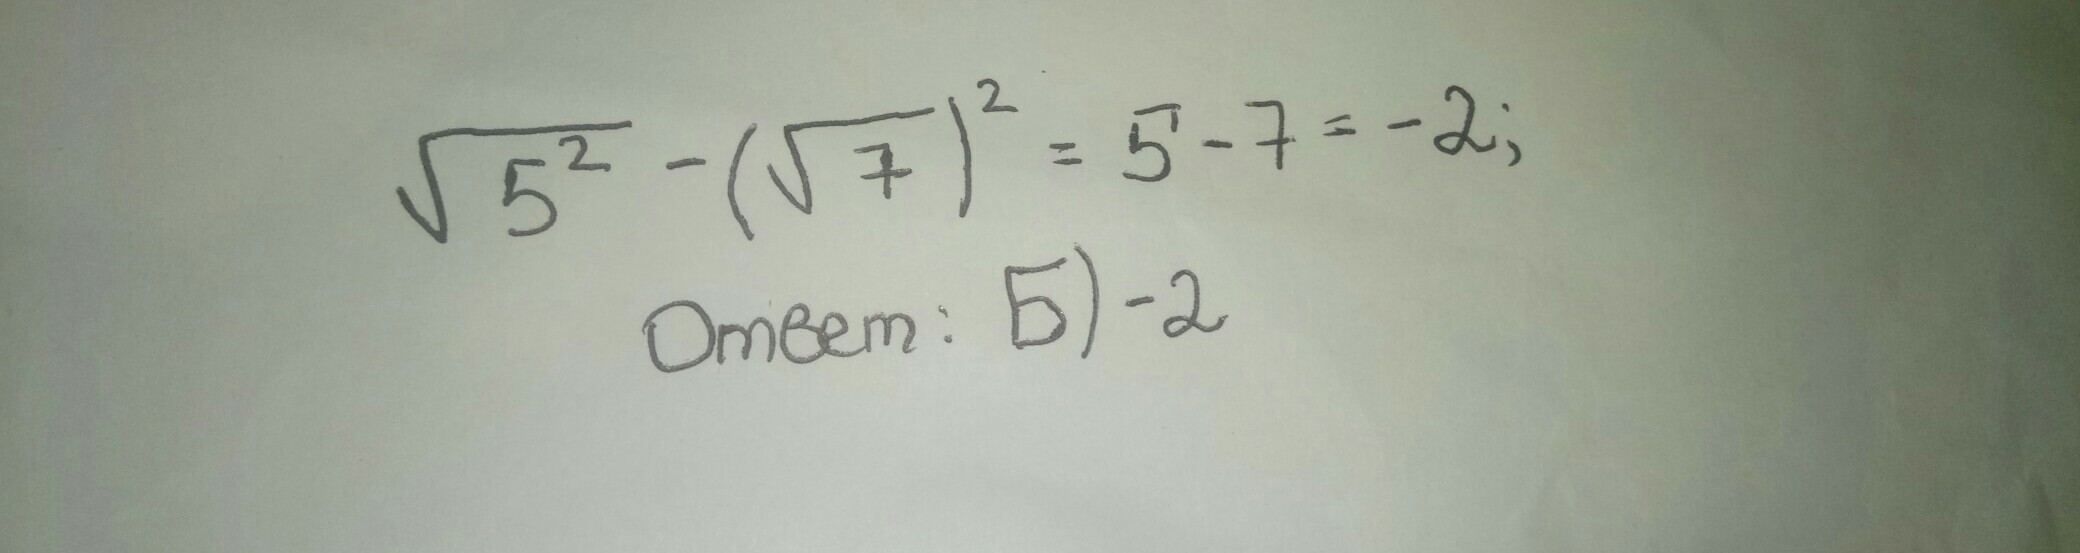 √5² - (√7)² = 5 - 7 = -2;
Ответ: Б) -2